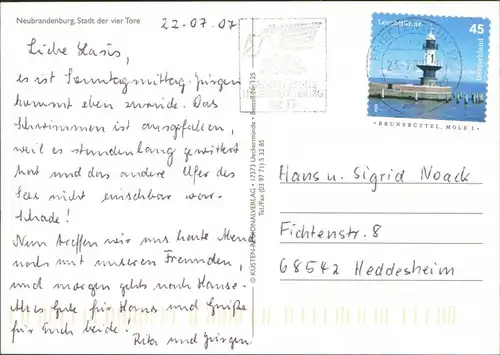 Neubrandenburg, Stadt der vier Tore
22.07.07
Liebe
es ist Sonntagmittag. Jürgen
kommt eben zurück. Das
Schwimmen ist ausgefallen,
weil es stundenlang gewittert
hat und das andere Ufer des
Sees nicht einsehbar war.
Schade!
Nun treffen wir uns heute Abend
noch mit unseren Freunden,
und morgen gehts nach Hause.
Alles Gute für Hanns und Grüße
für Euch beide!
Rita und Jürgen
© KÜSTEN-REGIONALVERLAG • 17373 Ueckermünde • Bestell-Nr. 125
Tel/Fax (03 97 71) 5 32 85
Leuchttürme
45
Deutschland
BRUNSBÜTTEL, MOLE 1
Hans u. Sigrid Noack
Fichtenstr. 8
68542 Heddesheim